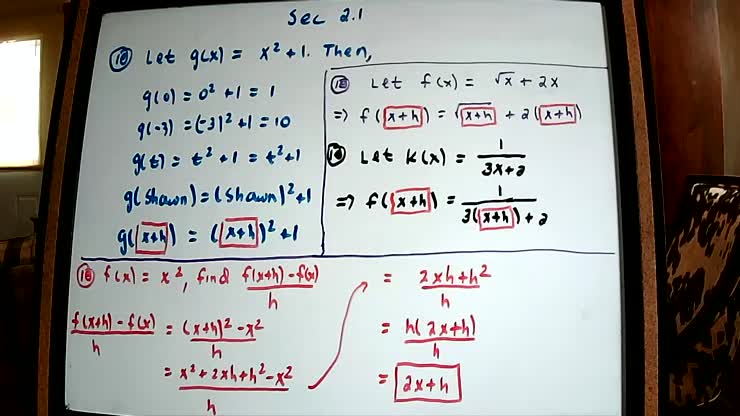 Sec 2.1
(18) Let g(x) = x² + 1. Then,
g(0) = 0² + 1 = 1
g(-3) = (-3)² + 1 = 10
g(t) = t² + 1 = t² + 1
g(shawn) = (shawn)² + 1
g(x+h) = (x+h)² + 1
Let f(x) = √x + 2x
=> f(x+h) = √x+h + 2(x+h)
Let k(x) = 1/(3x+2)
=> f(x+h) = 1/(3(x+h)+2)
f(x) = x², find (f(x+h) - f(x))/h
(f(x+h) - f(x))/h = ((x+h)² - x²)/h
= (x² + 2xh + h² - x²)/h
= (2xh + h²)/h
= h(2x+h)/h
= 2x+h